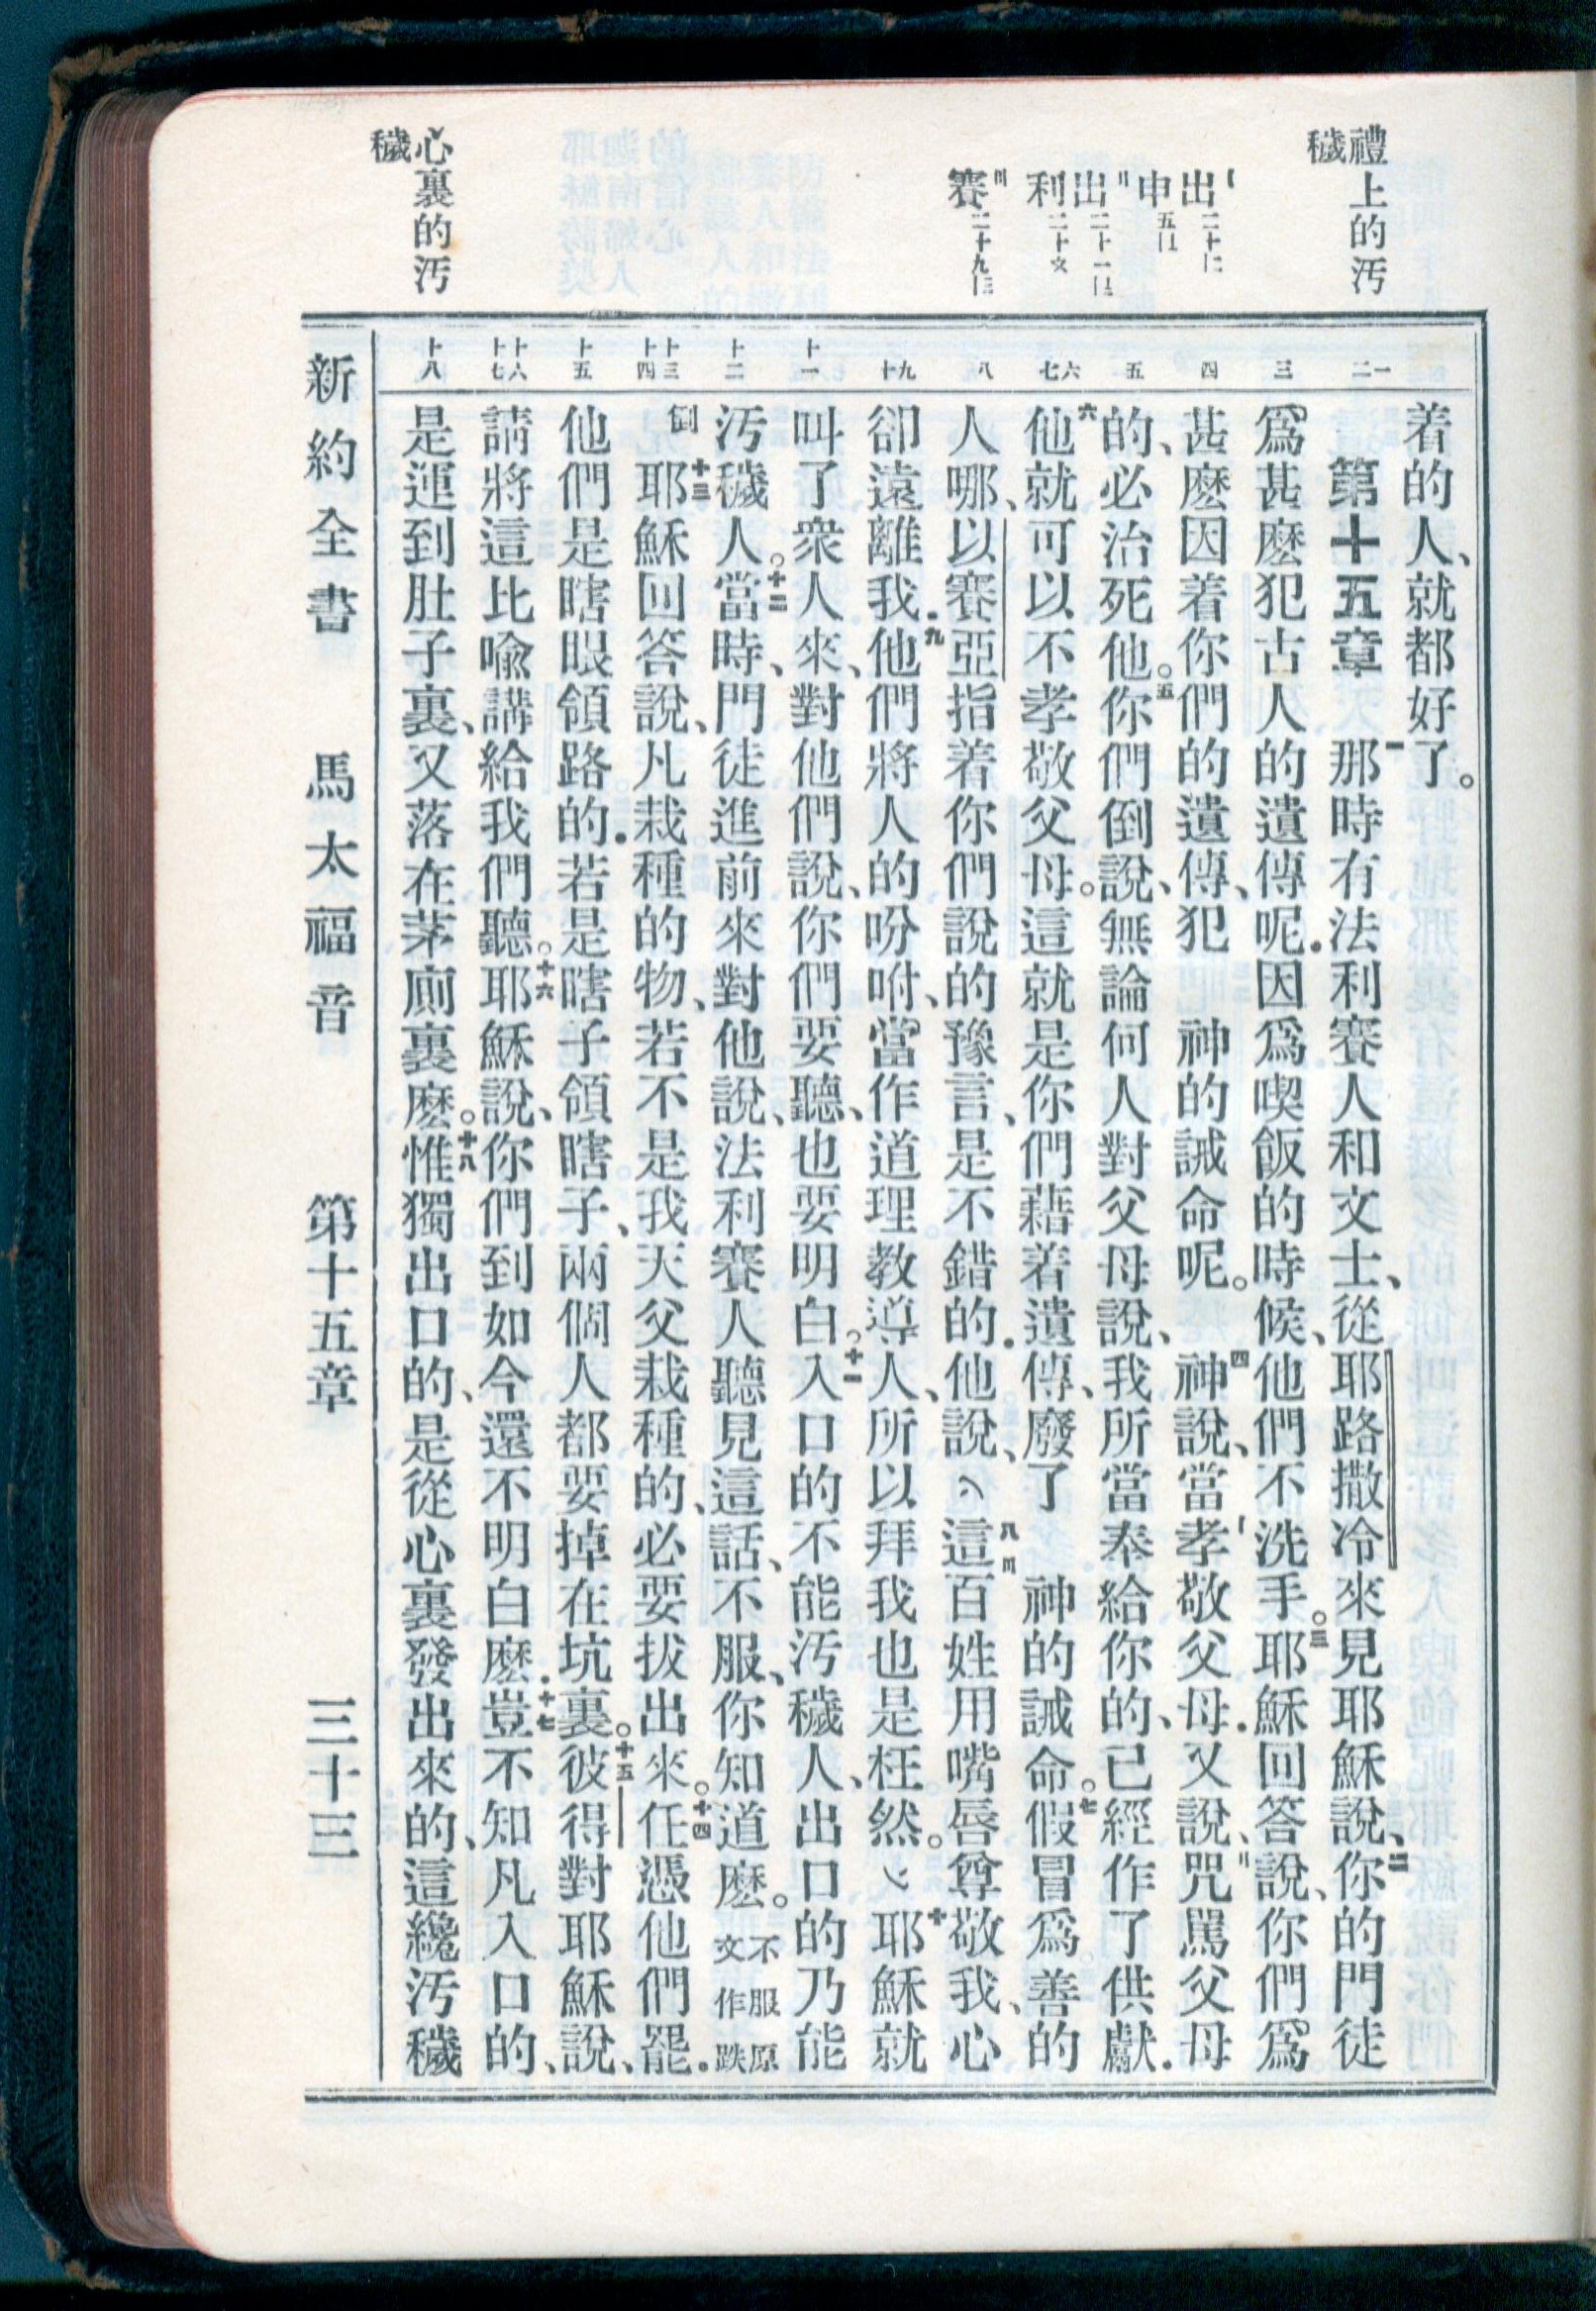 禮上的汚
穢
出二十
申五
出二十一
利二十
賽二十九
心裏的汚
穢
一二
三
四
五
六七
八
九十
十一
十二
十三十四
十五
十六十七
十八
着的人、就都好了。
第十五章 一那時有法利賽人和文士、從耶路撒冷來見耶穌說、二你的門徒
爲甚麽犯古人的遺傳呢．因爲喫飯的時候、他們不洗手。三耶穌回答說、你們爲
甚麽因着你們的遺傳、犯 神的誡命呢。四神說、當孝敬父母．又說、咒罵父母
的、必治死他。五你們倒說、無論何人對父母說、我所當奉給你的、已經作了供獻．
六他就可以不孝敬父母。這就是你們藉着遺傳、廢了 神的誡命。七假冒爲善的
人哪、以賽亞指着你們說的豫言、是不錯的．他說、八這百姓用嘴唇尊敬我、心
卻遠離我．九他們將人的吩咐、當作道理敎導人、所以拜我也是枉然。十耶穌就
叫了衆人來、對他們說、你們要聽、也要明白。十一入口的不能汚穢人、出口的乃能
汚穢人。十二當時、門徒進前來對他說、法利賽人聽見這話、不服、你知道麽。不服原文作跌
倒十三耶穌回答說、凡栽種的物、若不是我天父栽種的、必要拔出來。十四任憑他們罷．
他們是瞎眼領路的．若是瞎子領瞎子、兩個人都要掉在坑裏。十五彼得對耶穌說、
請將這比喩講給我們聽。十六耶穌說、你們到如今還不明白麽．十七豈不知凡入口的、
是運到肚子裏、又落在茅廁裏麽。十八惟獨出口的、是從心裏發出來的、這纔汚穢
新約全書 馬太福音 第十五章 三十三